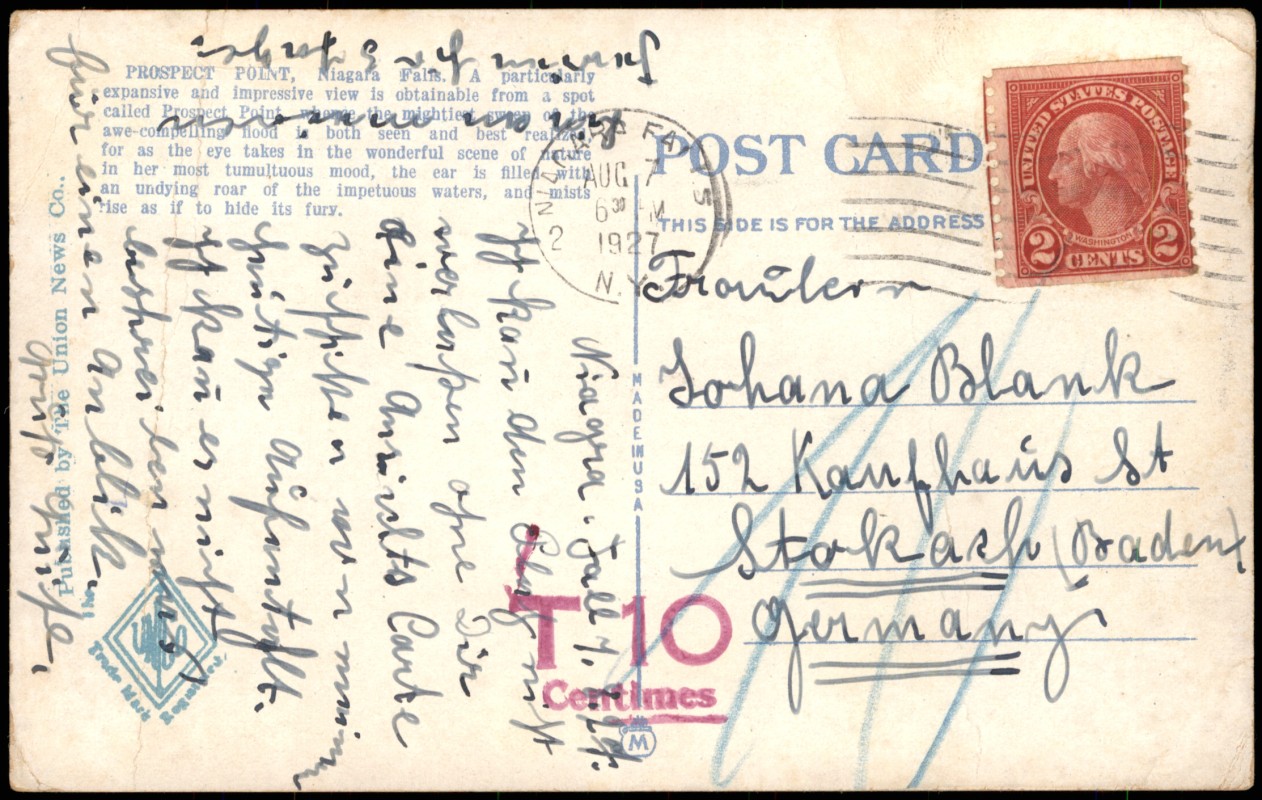 PROSPECT POINT, Niagara Falls. A particularly
expansive and impressive view is obtainable from a spot
called Prospect Point where the mightiest sweep of the
awe-compelling flood is both seen and best realized,
for as the eye takes in the wonderful scene of nature
in her most tumultuous mood, the ear is filled with
an undying roar of the impetuous waters, and mists
rise as if to hide its fury.
Published by The Union News Co.,
Trade Mark Registered.
MADE IN USA
M
Niagra. Fall 7.
Ich kan den Plaz nit
verlassen one Dir
eine Ansichts Carte
zu schicken von meinen
heutigen Aufenthalt.
Ich kan es nicht
beschreiben was
für einen Anblick.
Gruß
NIAGARA FALLS
AUG 7
6 30 PM
1927
N.Y.
2
POST CARD
THIS SIDE IS FOR THE ADDRESS
UNITED STATES POSTAGE
WASHINGTON
2 CENTS 2
Fraulein
Johana Blank
152 Kaufhaus St
Stokach (Baden)
Germany.
T 10
Centimes